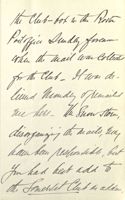 the Club-box in the Boston
Post office Sunday forenoon
when the mail was collected
for the Club. It was de-
livered Monday & remailed
me here. The Snow storm,
disarranging the mails, may
have been responsible, but
you had best add to
the Somerset Club in addre